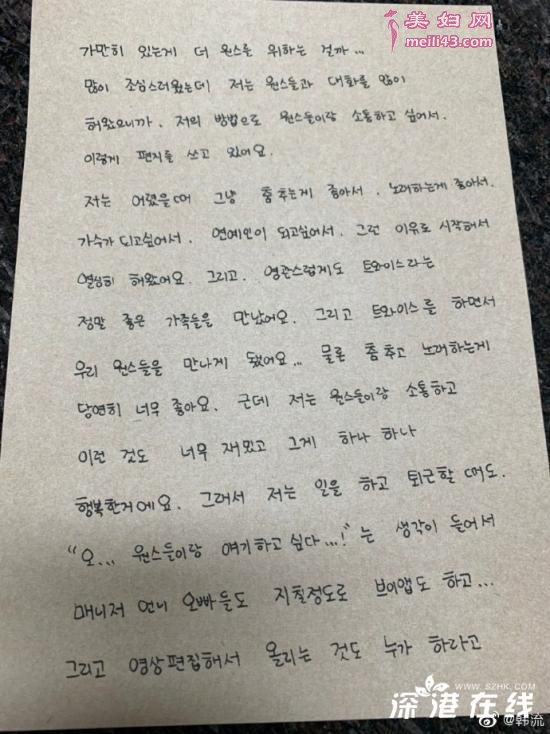 美妇网
meili43.com
가만히 있는게 더 원스를 위하는 걸까...
많이 조심스러웠는데 저는 원스들과 대화를 많이
해왔으니까. 저의 방법으로 원스들이랑 소통하고 싶어서.
이렇게 편지를 쓰고 있어요.
저는 어렸을때 그냥 춤추는게 좋아서. 노래하는게 좋아서.
가수가 되고싶어서. 연예인이 되고싶어서. 그런 이유로 시작해서
열심히 해왔어요. 그리고. 영광스럽게도 트와이스라는
정말 좋은 가족들을 만났어요. 그리고 트와이스를 하면서
우리 원스들을 만나게 됐어요... 물론 춤추고 노래하는게
당연히 너무 좋아요. 근데 저는 원스들이랑 소통하고
이런 것도 너무 재밌고 그게 하나 하나
행복한거에요. 그래서 저는 일을 하고 퇴근할 때도.
"오... 원스들이랑 얘기하고싶다...!"는 생각이 들어서
매니저 언니 오빠들도 지칠정도로 브이앱도 하고...
그리고 영상편집해서 올리는 것도 누가 하라고
WWW.SZHK.COM
深港在线
@韩流